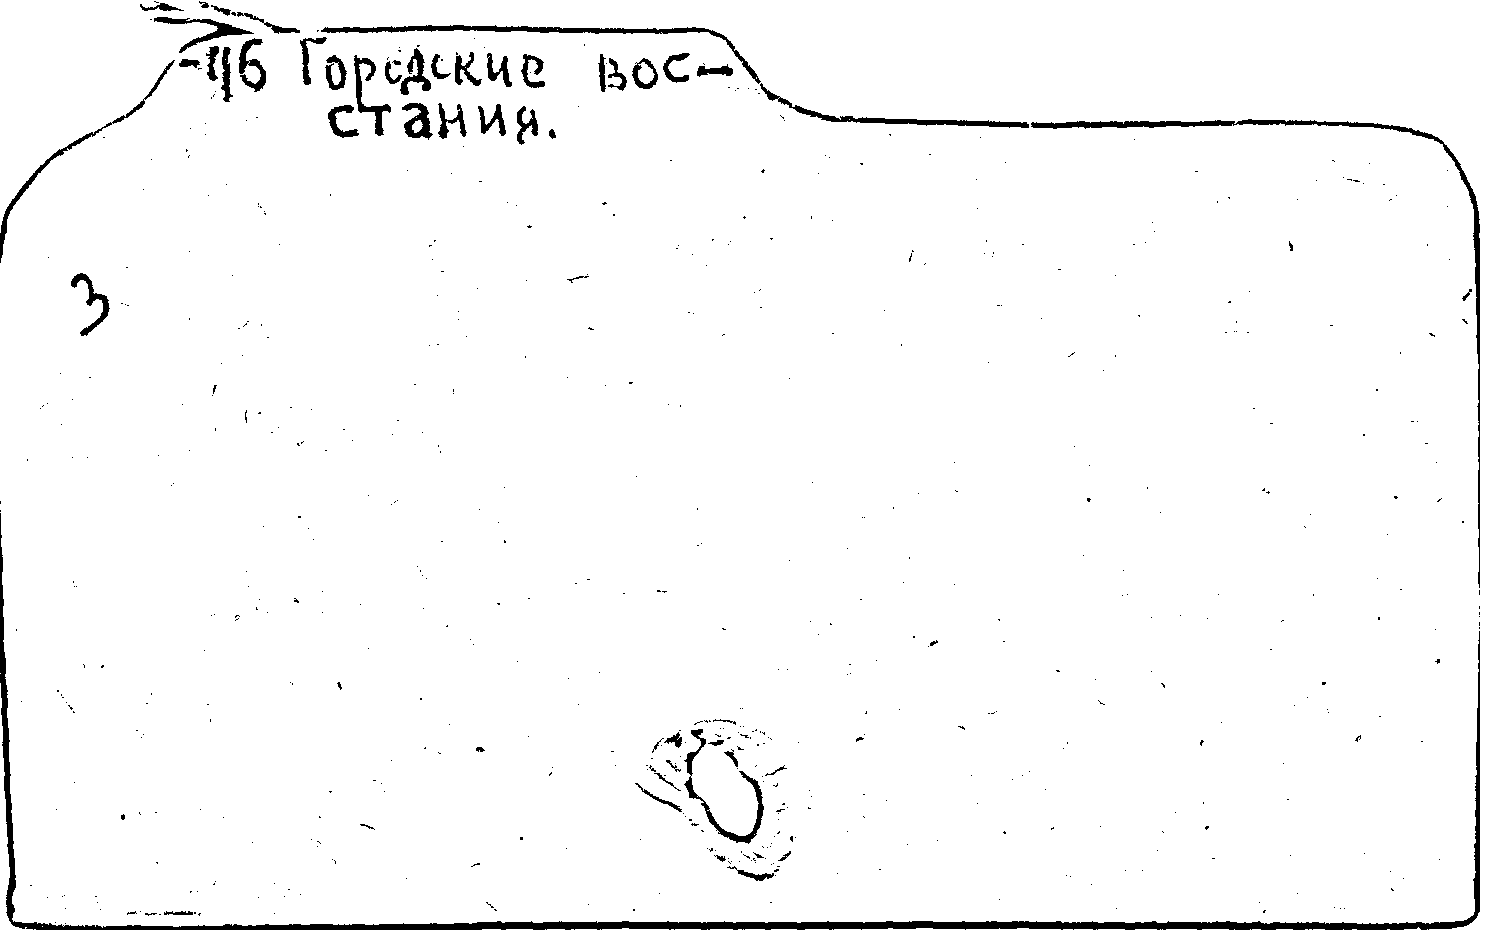 -116 Городские вос-
стания.
3